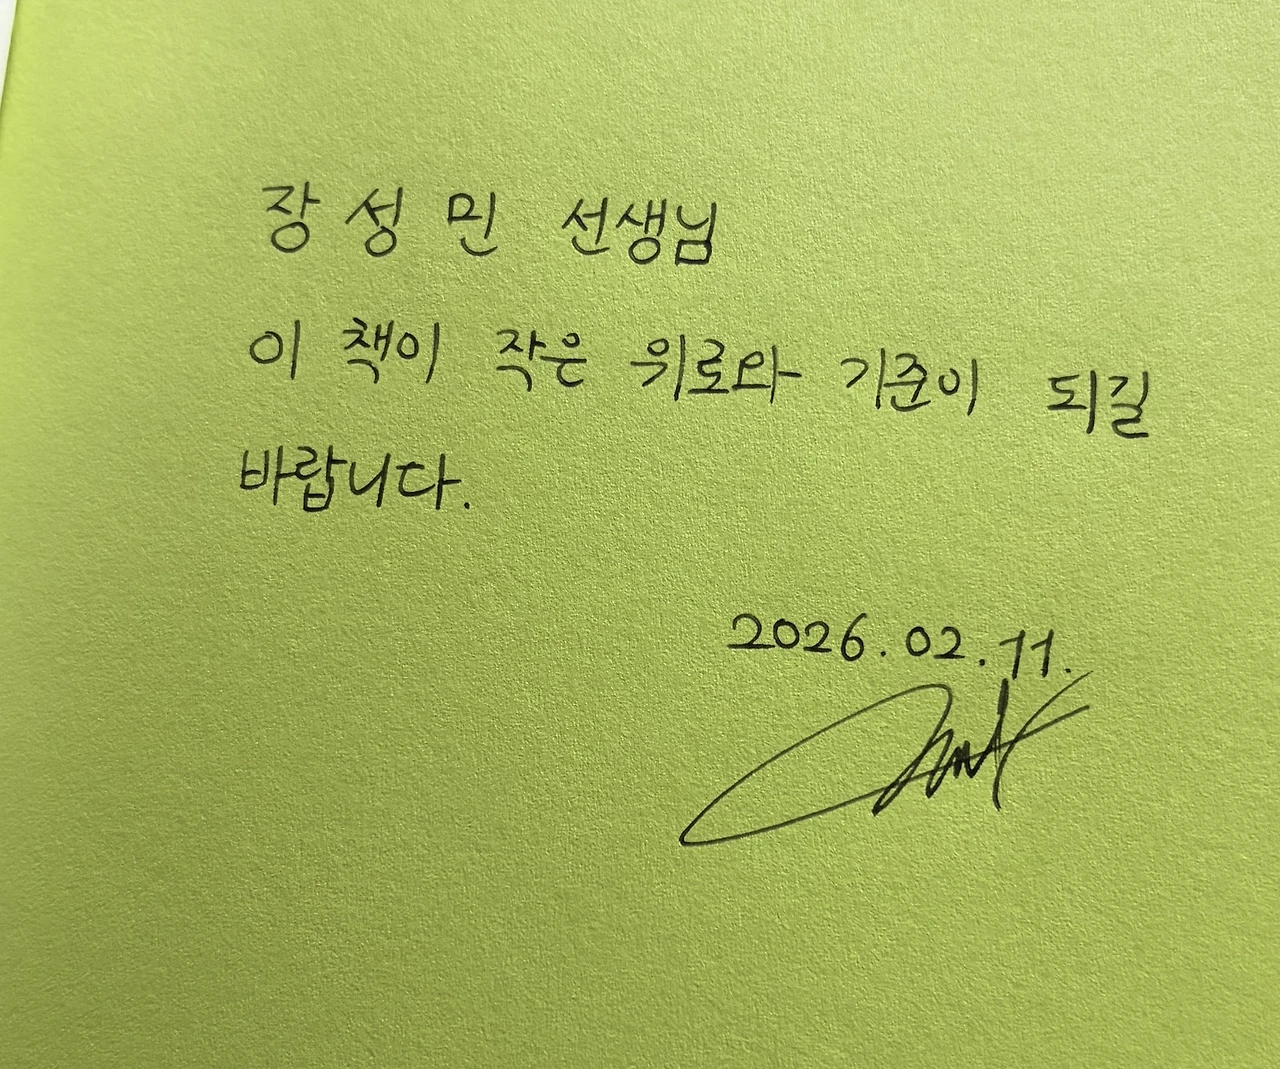 장성민 선생님
이 책이 작은 위로와 기준이 되길
바랍니다.
2026.02.11.